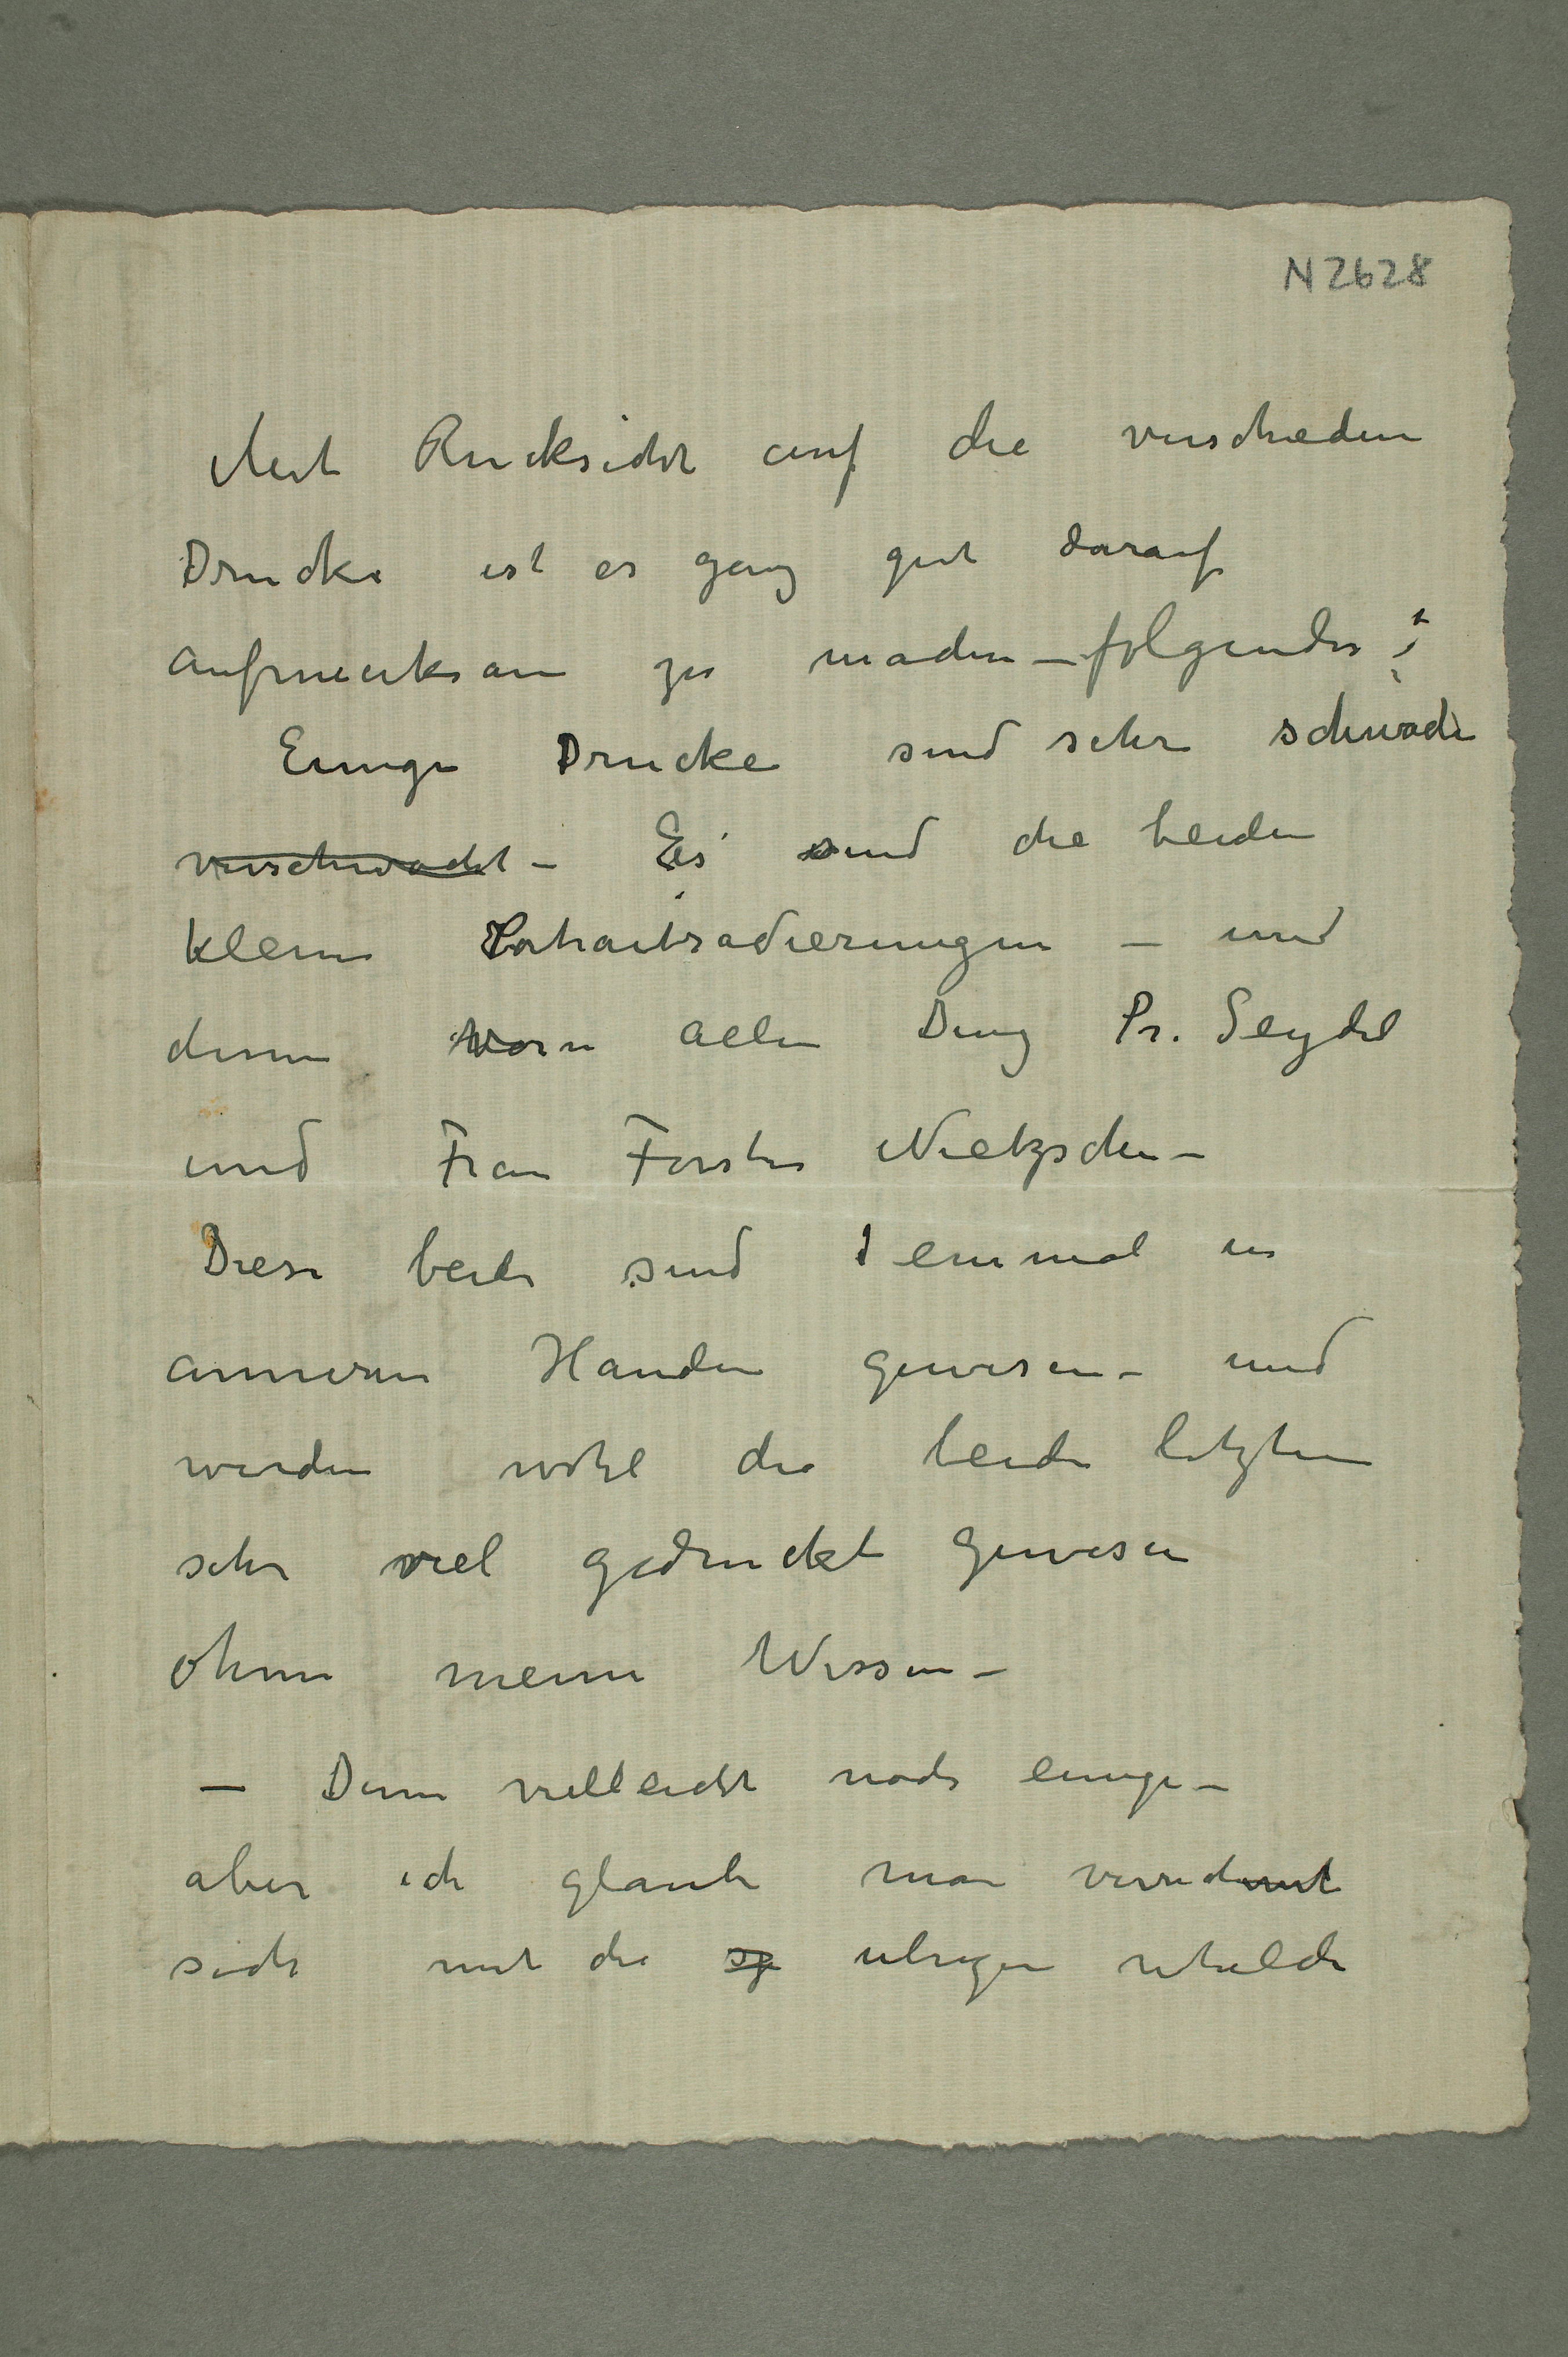 N 2628
Mit Rucksicht auf die verschieden
Drucke ist es ganz gut darauf
aufmerksam zu machen – folgendes :
Einige Drucke sind sehr schwach
verschwacht – Es sind die beiden
kleine Portraitradierungen – und
denn vorn allen Ding Pr. Seydel
und Frau Forster Nietzsche –
Diese beide sind einmal in
anneren Handen gewesen – und
werden wohl die beide letzten
sehr viel gedruckt gewesen
ohne meine Wissen –
– Denn vielleicht noch einige –
aber ich glaube man
sich mit die ubrigen